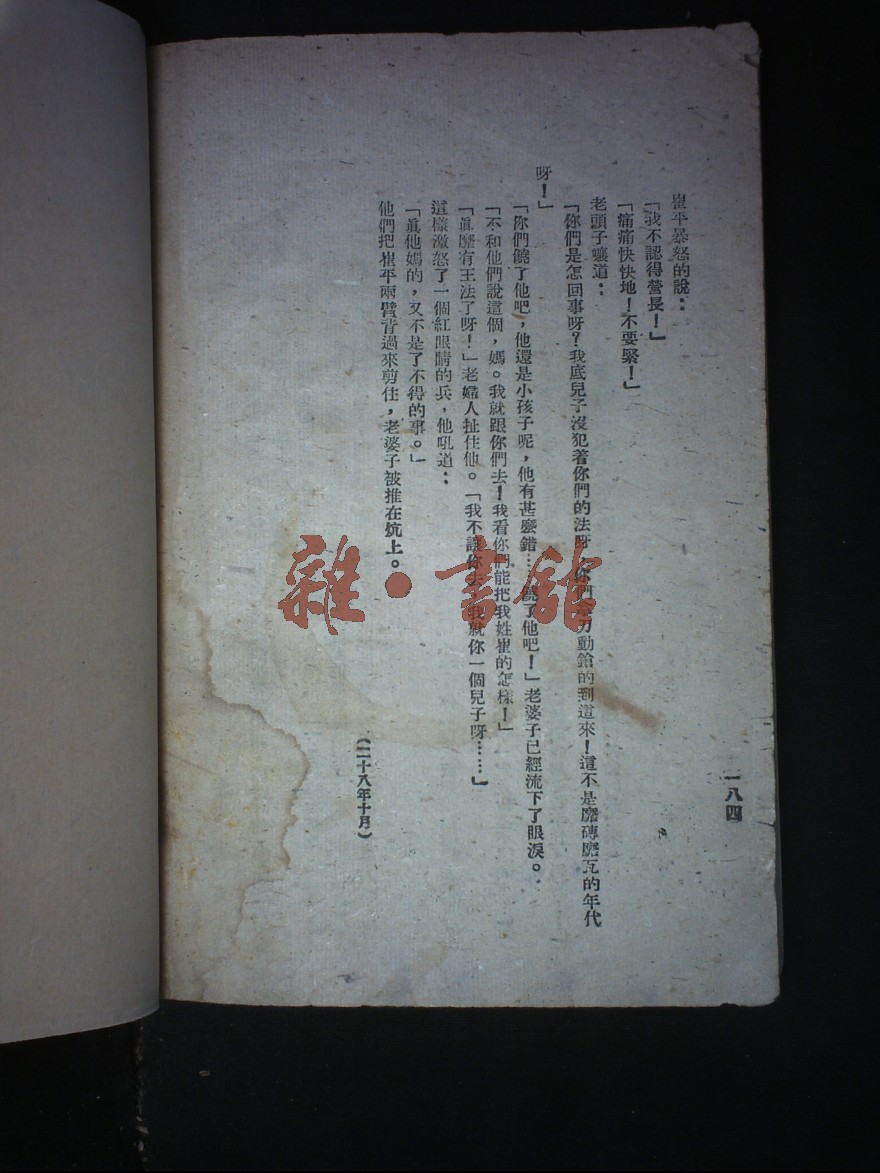 崔平暴怒的說：
「我不認得營長！」
「痛痛快快地！不要緊！」
老頭子嚷道：
「你們是怎回事呀？我底兒子沒犯着你們的法呀 你們 刀動鎗的到這來！這不是磨磚磨瓦的年代
呀！」
「你們饒了他吧，他還是小孩子呢，他有甚麼錯…饒了他吧！」老婆子已經流下了眼淚。
「不和他們說這個，媽。我就跟你們去！我看你們能把我姓崔的怎樣！」
「眞麽有王法了呀！」老婦人扯住他。「我不讓你去 我就你一個兒子呀……」
這樣激怒了一個紅眼睛的兵，他吼道：
「眞他媽的，又不是了不得的事。」
他們把崔平兩臂背過來剪住，老婆子被推在炕上。
（二十八年十月）
一八四
雜·書館